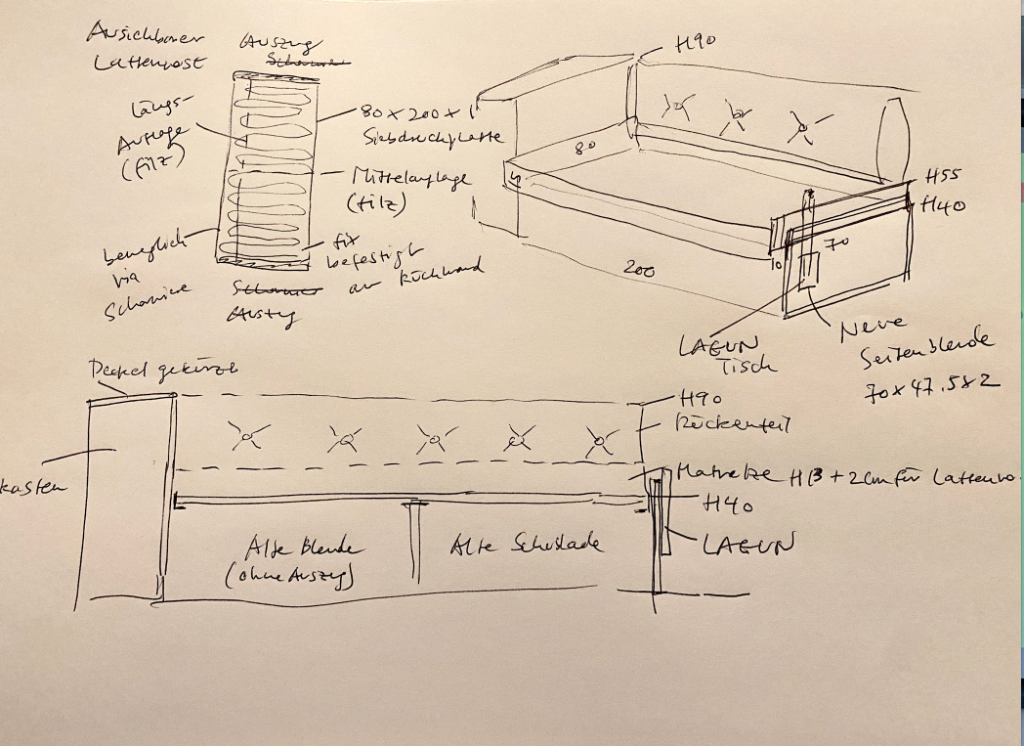 Ausziehbarer
Lattenrost
Auszug
Scharnier
Längs-
Auflage
(Filz)
80 x 200 x 1
Siebdruckplatte
Mittelauflage
(Filz)
beweglich
via
Scharniere
fix
befestigt
an Rückwand
Scharnier
Auszug
H90
80
H55
H40
70
10
200
LAGUN
Tisch
Neue
Seitenblende
70 x 47.5 x 2
Deckel gekürzt
kasten
H90
Rückenteil
Matratze H13 + 2cm für Lattenro
H40
LAGUN
Alte Blende
(ohne Auszug)
Alte Schublade